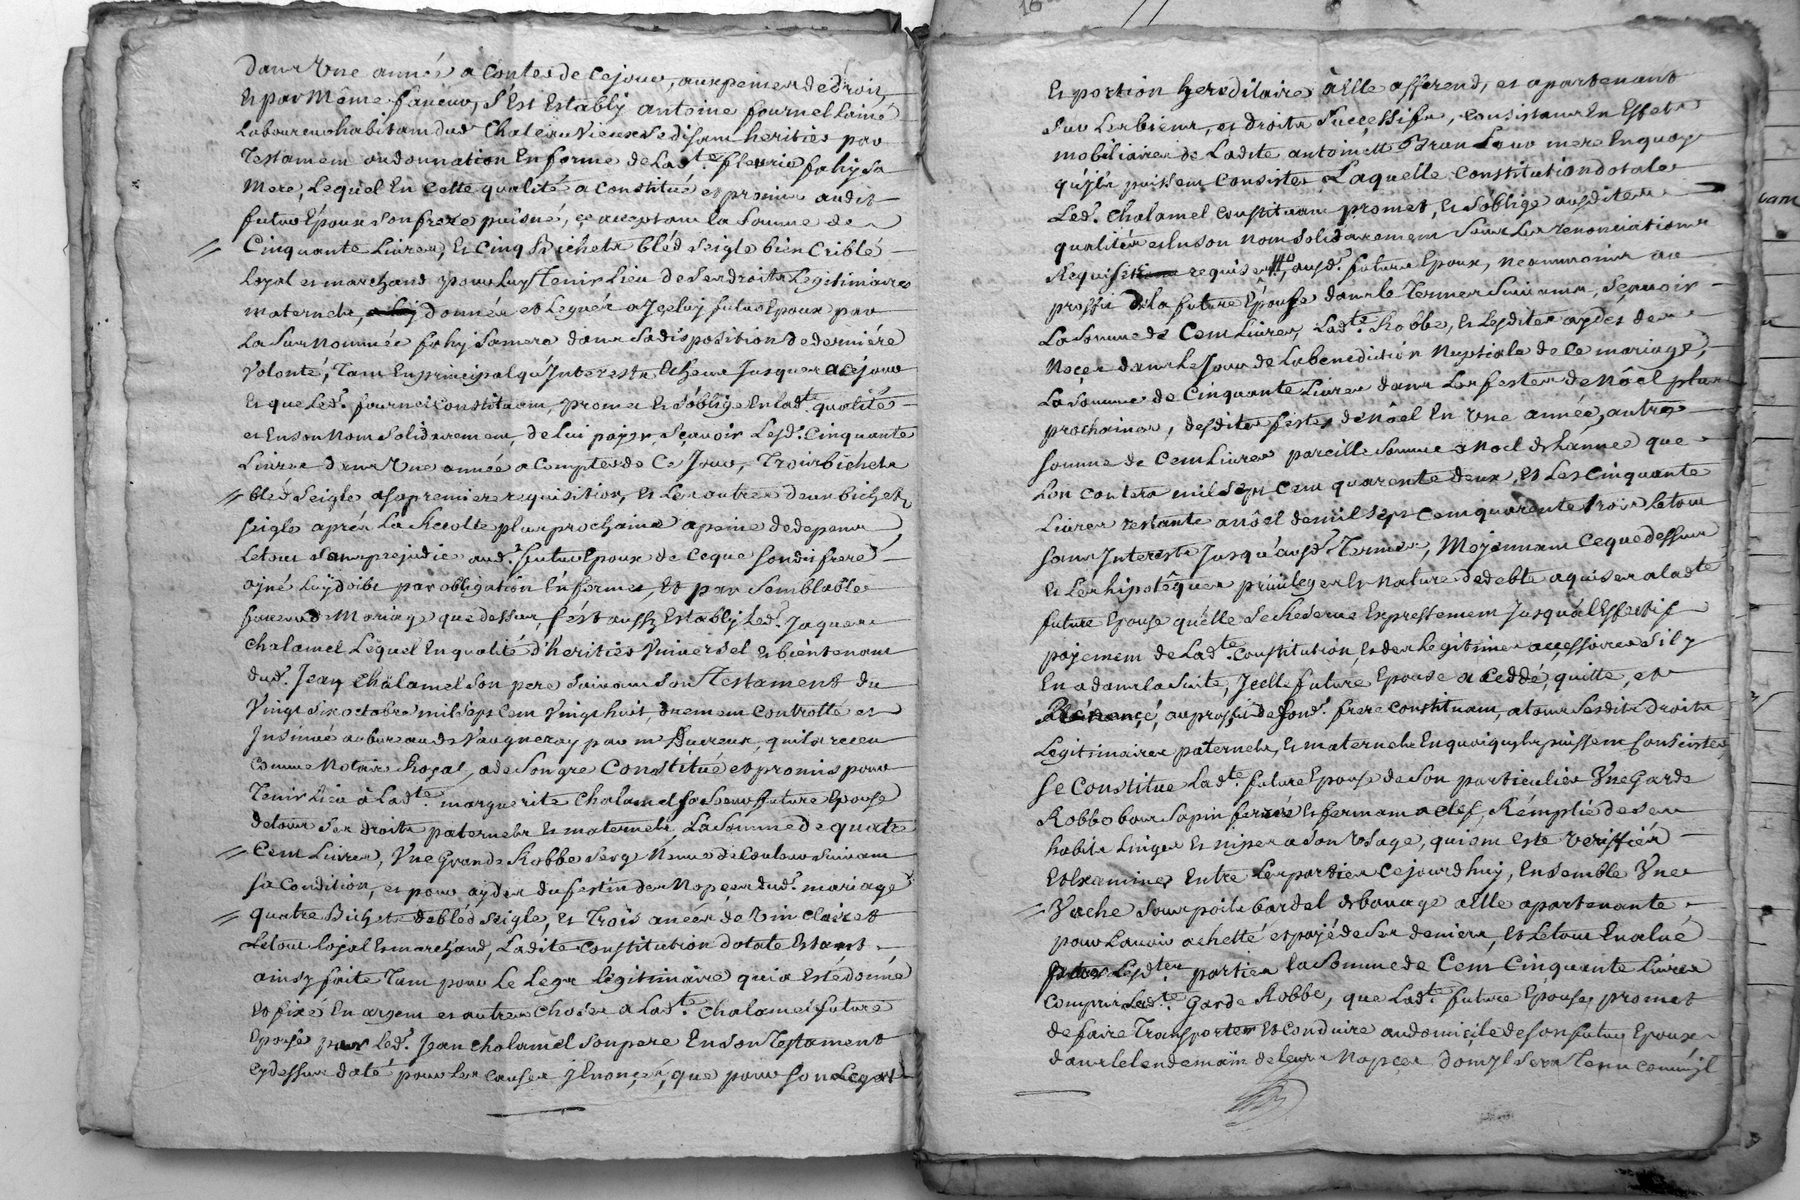 dans une année a Conter de Cejour, aux peines de droit,
Et par Même faveur, s'Est Estably antoine fournel Lainé
Laboureur habitant dud. Chateauvieux se disant heritier par
Testament ou donnation En forme de Lad.te fleurie fahy Sa
Mere, Lequel En Cette qualité a Constitué et promis audit
futur Epoux son frere puisné, ce acceptant la somme de
Cinquante Livres, Et Cinq Bichets bléd seigle bien Criblé
Loyal et marchand pour luy Tenir Lieu de Ses droits Legitimaires
maternels, donnés et Legués a Jceluy futur Epoux par
La Surnommée fahy Sa mere dans Sa disposition de derniére
Volonté, Tant En principal qu'Jnterests Echeus Jusques a Cejour
Et que Led. fournel Constituant, promet Et s'oblige En lad.te qualité
et En son Nom Solidairement, de Lui payer, Sçavoir Lesd. Cinquante
Livres dans Une année a Compter de Ce Jour, Trois bichets
bléd Seigle a sa premiere requisition, Et Les autres deux bichets
Seigle aprés La Recolte plus prochaine a peine de depens
Letout Sans prejudice aud. futur Epoux de Ceque Sondit frere
ainé Luy doibt par obligation En forme, Et par Semblable
faveur de Mariage que dessus, s'ést aussy Establi Led. Jaques
Chalamel Lequel En qualité d'heritier Universel Et bientenant
dud. Jean Chalamel Son pere Suivant Son Testament du
Vingt Six octobre mil Sept Cent Vingt huit, duement Controllé et
Jnsinué au bureau de Vaugneray par m.e Ducreux, qui la receu
Comme Notaire Royal, a de Son gre Constitué et promis pour
Tenir Lieu à Lad.te marguerite Chalamel Sa Soeur future Epouse
de tous Ses droits paternels Et maternels, La Somme de quatre
Cent Livres, Une Grande Robbe Serge Neuve de Couleur Suivant
Sa Condition, et pour ayder du festin des Nopces dud. mariage
quatre Bichets de bléd Seigle, Et Trois anées de Vin Clairet
Letout loyal Et marchand, Ladite Constitution dotale Estant
ainsy faite Tant pour Le Legs Légitimaire qui a Esté donné
Et fixé En argent et autres Choses a Lad.te Chalamel future
Epouse par Led. Jean Chalamel Son pere En Son Testament
Cydessus daté pour Les Causes y Enoncés, que pour Son Legat
Et portion hereditaire à Elle afferend, et apartenant
Sur Les biens, et droits Successifs, Consistans En Effets
mobiliaires de Ladite antoinette Brun Leur mere En quoy
qu'jls puissent Consister Laquelle Constitution dotale
Led. Chalamel Constituant promet, Et s'oblige ausdites
qualités et En son Nom Solidairement Sous Les renonciations
Requises requises ausd. futurs Epoux, Neanmoins au
proffit de la future Epouse dans le Termes Suivans, Sçavoir
La Somme de Cent Livres, Lad.te Robbe, Et Lesdites aydes de
Noces dans le Jour de La benediction Nuptiale de Ce mariage,
La Somme de Cinquante Livres dans Les festes de Nöel plus
prochaines, desdites festes de Nôel En Une année, autre
Somme de Cent Livres pareille Somme a Noel de Lannée que
Lon Contera mil Sept Cent quarente deux, Et Les Cinquante
Livres restante a Nôel de mil Sept Cent quarente trois Letout
Sans Jnterests Jusqu'ausd. Termes, Moyennant Ceque dessus
Et Les hipotêques privileges Et Nature de debte aquises a lad.te
future Epouse qu'Elle Se Reserve Expressement Jusqu'a l'Effectif
payement de Lad.te Constitution, Et des Legitimes accessoires S'il y
En a dans la Suite, Jcelle future Epouse a Ceddé, quitté, et
Rénoncé, au proffit de Sond. frere Constituant, a tous Sesdits droits
Legitimaires paternels, Et maternels En quoi qu'jls puissent Consister
Se Constitue Lad.te future Epouse de Son particulier Une Garde
Robbe bois Sapin ferrée Et fermant a Clef, Rémplié de Ses
habits Linges Et nipes a Son Usage, qui ont Este Veriffiés
Et Examinés Entre Les parties Cejourdhuy, Ensemble Une
Vache Sous poils bardel a Elle apartenante
pour L'avoir achetté et payé de Ses deniers, Et Letout Evalué
Lesd.tes parties la Somme de Cent Cinquante Livres
Compris Lad.te Garde Robbe, que Lad.te future Epouse promet
de faire Transporter Et Conduire au domicile de Son futur Epoux
dans le lendemain de leurs Nopces, dont jl Sera Tenu Comm'jl